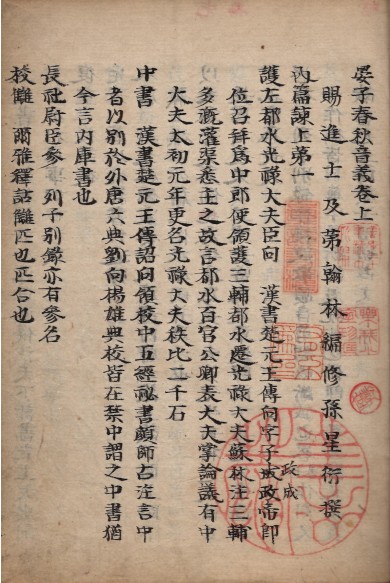 晏子春秋音義卷上
賜進士及第翰林編修孫星衍撰
內篇諫上第一
護左都水光祿大夫臣向　漢書楚元王傳向字子政成帝即
位召拜為中郎使領護三輔都水遷光祿大夫蘇林注三輔
多溉灌渠悉主之故言都水百官公卿表大夫掌論議有中
大夫太初元年更名光祿大夫秩比二千石
中書　漢書楚元王傳詔向領校中五經祕書顏師古注言中
者以別於外唐六典劉向揚雄典校皆在禁中謂之中書猶
今言內庫書也
長社尉臣參　列子別錄亦有參名
校讎　爾雅釋詁讎匹也匹合也